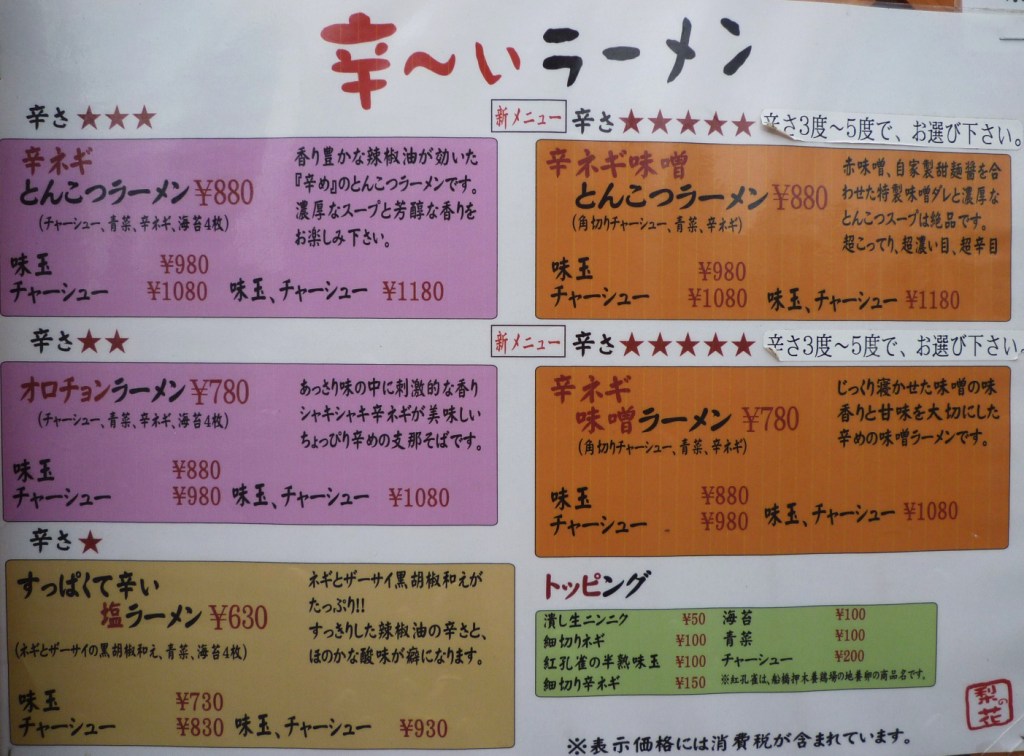 辛〜いラーメン
辛さ★★★
辛ネギ
とんこつラーメン ¥880
(チャーシュー、青菜、辛ネギ、海苔4枚)
香り豊かな辣椒油が効いた
『辛め』のとんこつラーメンです。
濃厚なスープと芳醇な香りを
お楽しみ下さい。
味玉 ¥980
チャーシュー ¥1080 味玉、チャーシュー ¥1180
新メニュー 辛さ★★★★★ 辛さ3度〜5度で、お選び下さい。
辛ネギ味噌
とんこつラーメン ¥880
(角切りチャーシュー、青菜、辛ネギ)
赤味噌、自家製甜麺醤を合
わせた特製味噌ダレと濃厚な
とんこつスープは絶品です。
超こってり、超濃い目、超辛目
味玉 ¥980
チャーシュー ¥1080 味玉、チャーシュー ¥1180
辛さ★★
オロチョンラーメン ¥780
(チャーシュー、青菜、辛ネギ、海苔4枚)
あっさり味の中に刺激的な香り
シャキシャキ辛ネギが美味しい
ちょっぴり辛めの支那そばです。
味玉 ¥880
チャーシュー ¥980 味玉、チャーシュー ¥1080
新メニュー 辛さ★★★★★ 辛さ3度〜5度で、お選び下さい。
辛ネギ
味噌ラーメン ¥780
(角切りチャーシュー、青菜、辛ネギ)
じっくり寝かせた味噌の味
香りと甘味を大切にした
辛めの味噌ラーメンです。
味玉 ¥880
チャーシュー ¥980 味玉、チャーシュー ¥1080
辛さ★
すっぱくて辛い
塩ラーメン ¥630
(ネギとザーサイの黒胡椒和え、青菜、海苔4枚)
ネギとザーサイ黒胡椒和えが
たっぷり!!
すっきりした辣椒油の辛さと、
ほのかな酸味が癖になります。
味玉 ¥730
チャーシュー ¥830 味玉、チャーシュー ¥930
トッピング
潰し生ニンニク ¥50 海苔 ¥100
細切りネギ ¥100 青菜 ¥100
紅孔雀の半熟味玉 ¥100 チャーシュー ¥200
細切り辛ネギ ¥150 ※紅孔雀は、船橋押木養鶏場の地養卵の商品名です。
梨の花
※表示価格には消費税が含まれています。